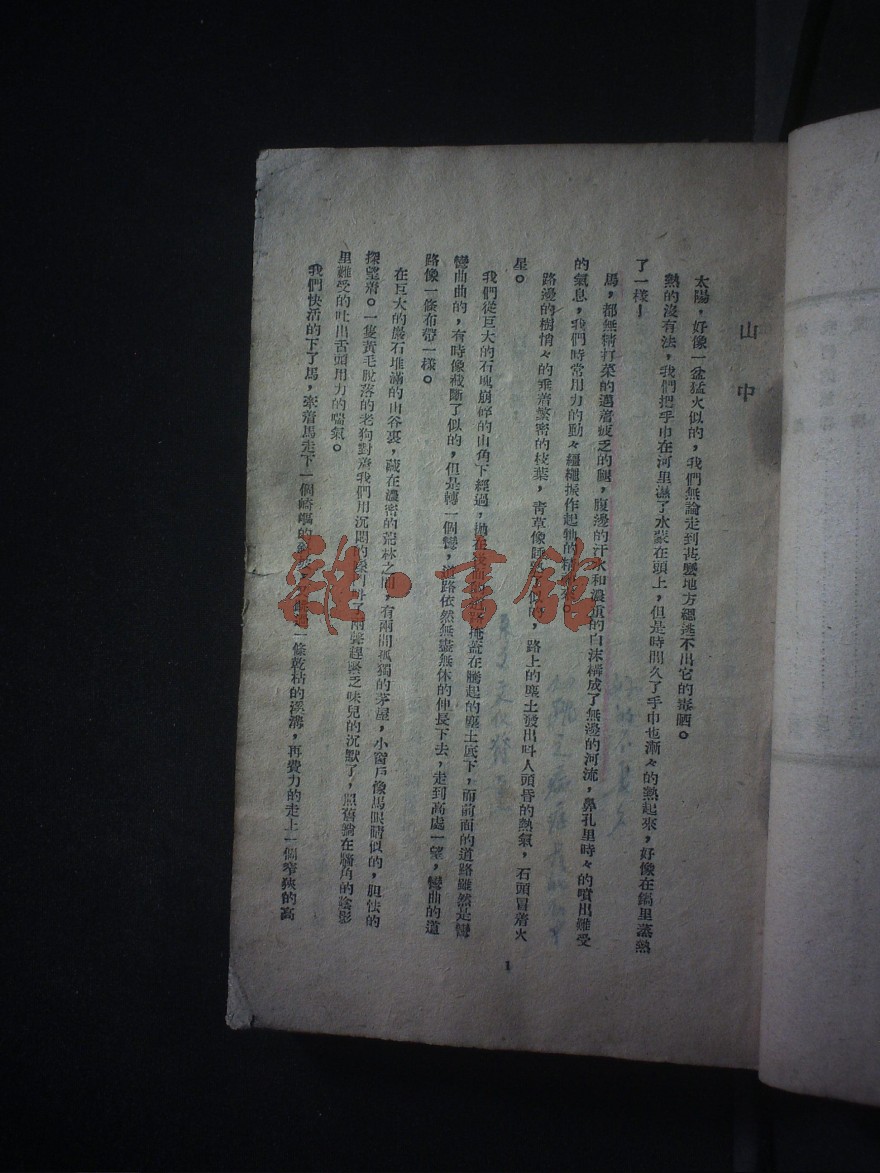 山中
太陽，好像一盆猛火似的，我們無論走到甚麼地方繮逃不出它的毒晒。
熱的沒有法，我們把手巾在河里濕了水蒙在頭上，但是時間久了手巾也漸々的熱起來，好像在鍋里蒸熱
了一樣！
馬，都無精打菜的邁着疲乏的腿，腹邊的汗水和濃重的白沫構成了無邊的河流，鼻孔里時々的噴出難受
的氣息，我們時常用力的動々繮繩振作起牠的精
路邊的樹悄々的垂着繁密的枝葉，靑草像睡 了似的，路上的塵土發出吽人頭昏的熱氣，石頭冒着火
星。
我們從巨大的石塊崩碎的山角下經過，拋在後面的 掩蓋在騰起的塵土底下，而前面的道路雖然是彎
彎曲曲的，有時像截斷了似的，但是轉一個彎，道路依然無盡無休的伸長下去，走到高處一望，彎曲的道
路像一條布帶一樣。
在巨大的巖石堆滿的山谷裏，藏在濃密的荒林之間，有兩間孤獨的茅屋，小窗戶像馬眼睛似的，胆怯的
探望着。一隻黃毛脫落的老狗對着我們用沉悶的 了兩聲趕緊乏味兒的沉默了，照舊躺在牆角的陰影
里難受的吐出舌頭用力的喘氣。
我們快活的下了馬，牽着馬走下一個崎嶇的 一條乾枯的溪溝，再費力的走上一個窄狹的高
1
雜·書館